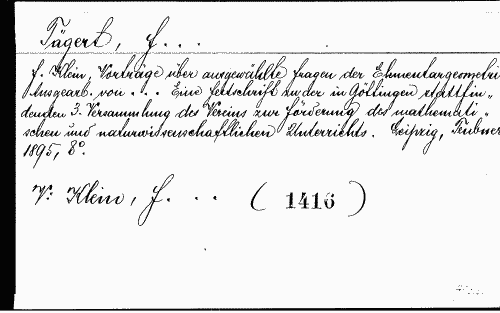 Tägert, F. . .
F. Klein, Vorträge über ausgewählte Fragen der Elementargeometri
Ausgearb. von . . . Eine Festschrift zu der in Göttingen stattfin-
denden 3. Versammlung des Vereins zur Förderung des mathemati-
schen und naturwissenschaftlichen Unterrichts. Leipzig, Teubner
1895, 8°.
V. Klein, F. . . ( 1416 )